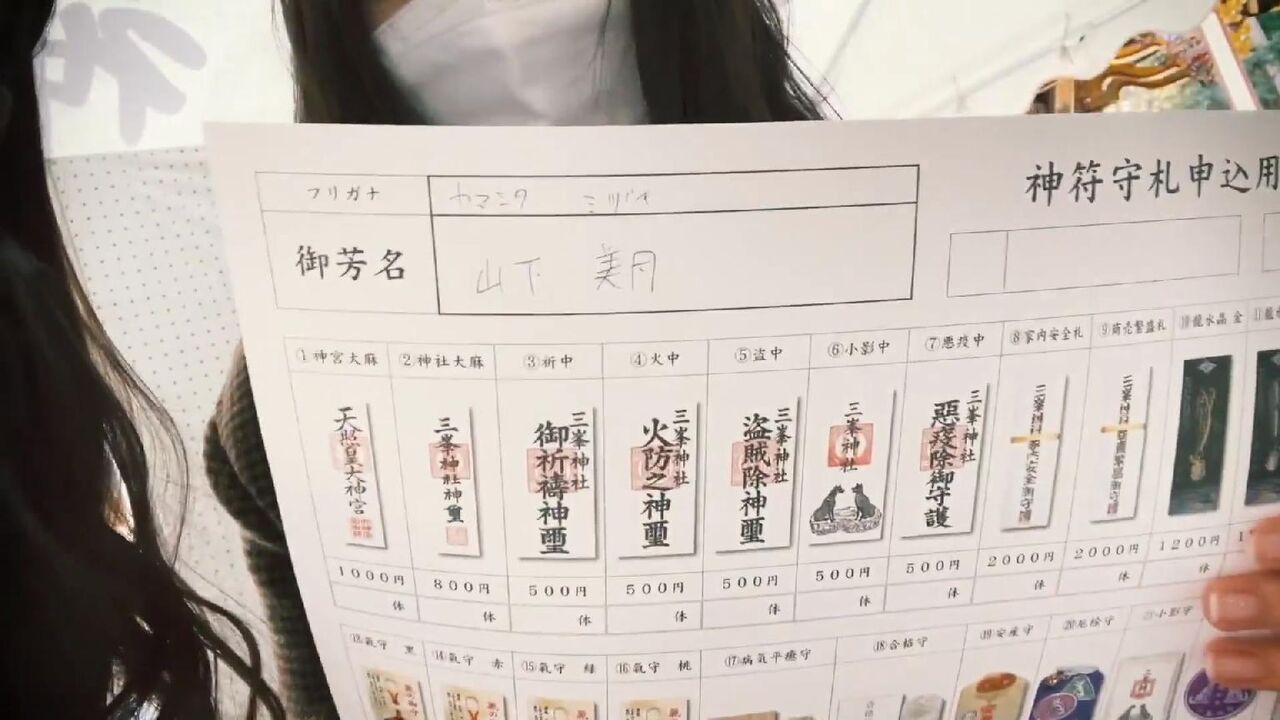 神符守札申込用
フリガナ ヤマシタ ミヅキ
御芳名 山下 美月
①神宮大麻 ②神社大麻 ③祈中 ④火中 ⑤盗中 ⑥小影中 ⑦悪疫中 ⑧家内安全札 ⑨商売繁盛札 ⑩龍水晶 金
天照皇大神宮
三峯神社神璽
三峯神社 御祈禱神璽
三峯神社 火防之神璽
三峯神社 盗賊除神璽
三峯神社
三峯神社 惡疫除御守護
1000円 800円 500円 500円 500円 500円 500円 2000円 2000円 1200円
体 体 体 体 体 体 体 体 体 体
⑬氣守 黒 ⑭氣守 赤 ⑮氣守 緑 ⑯氣守 桃 ⑰病気平癒守 ⑱合格守 ⑲安産守 ⑳厄除守 ㉑小影守